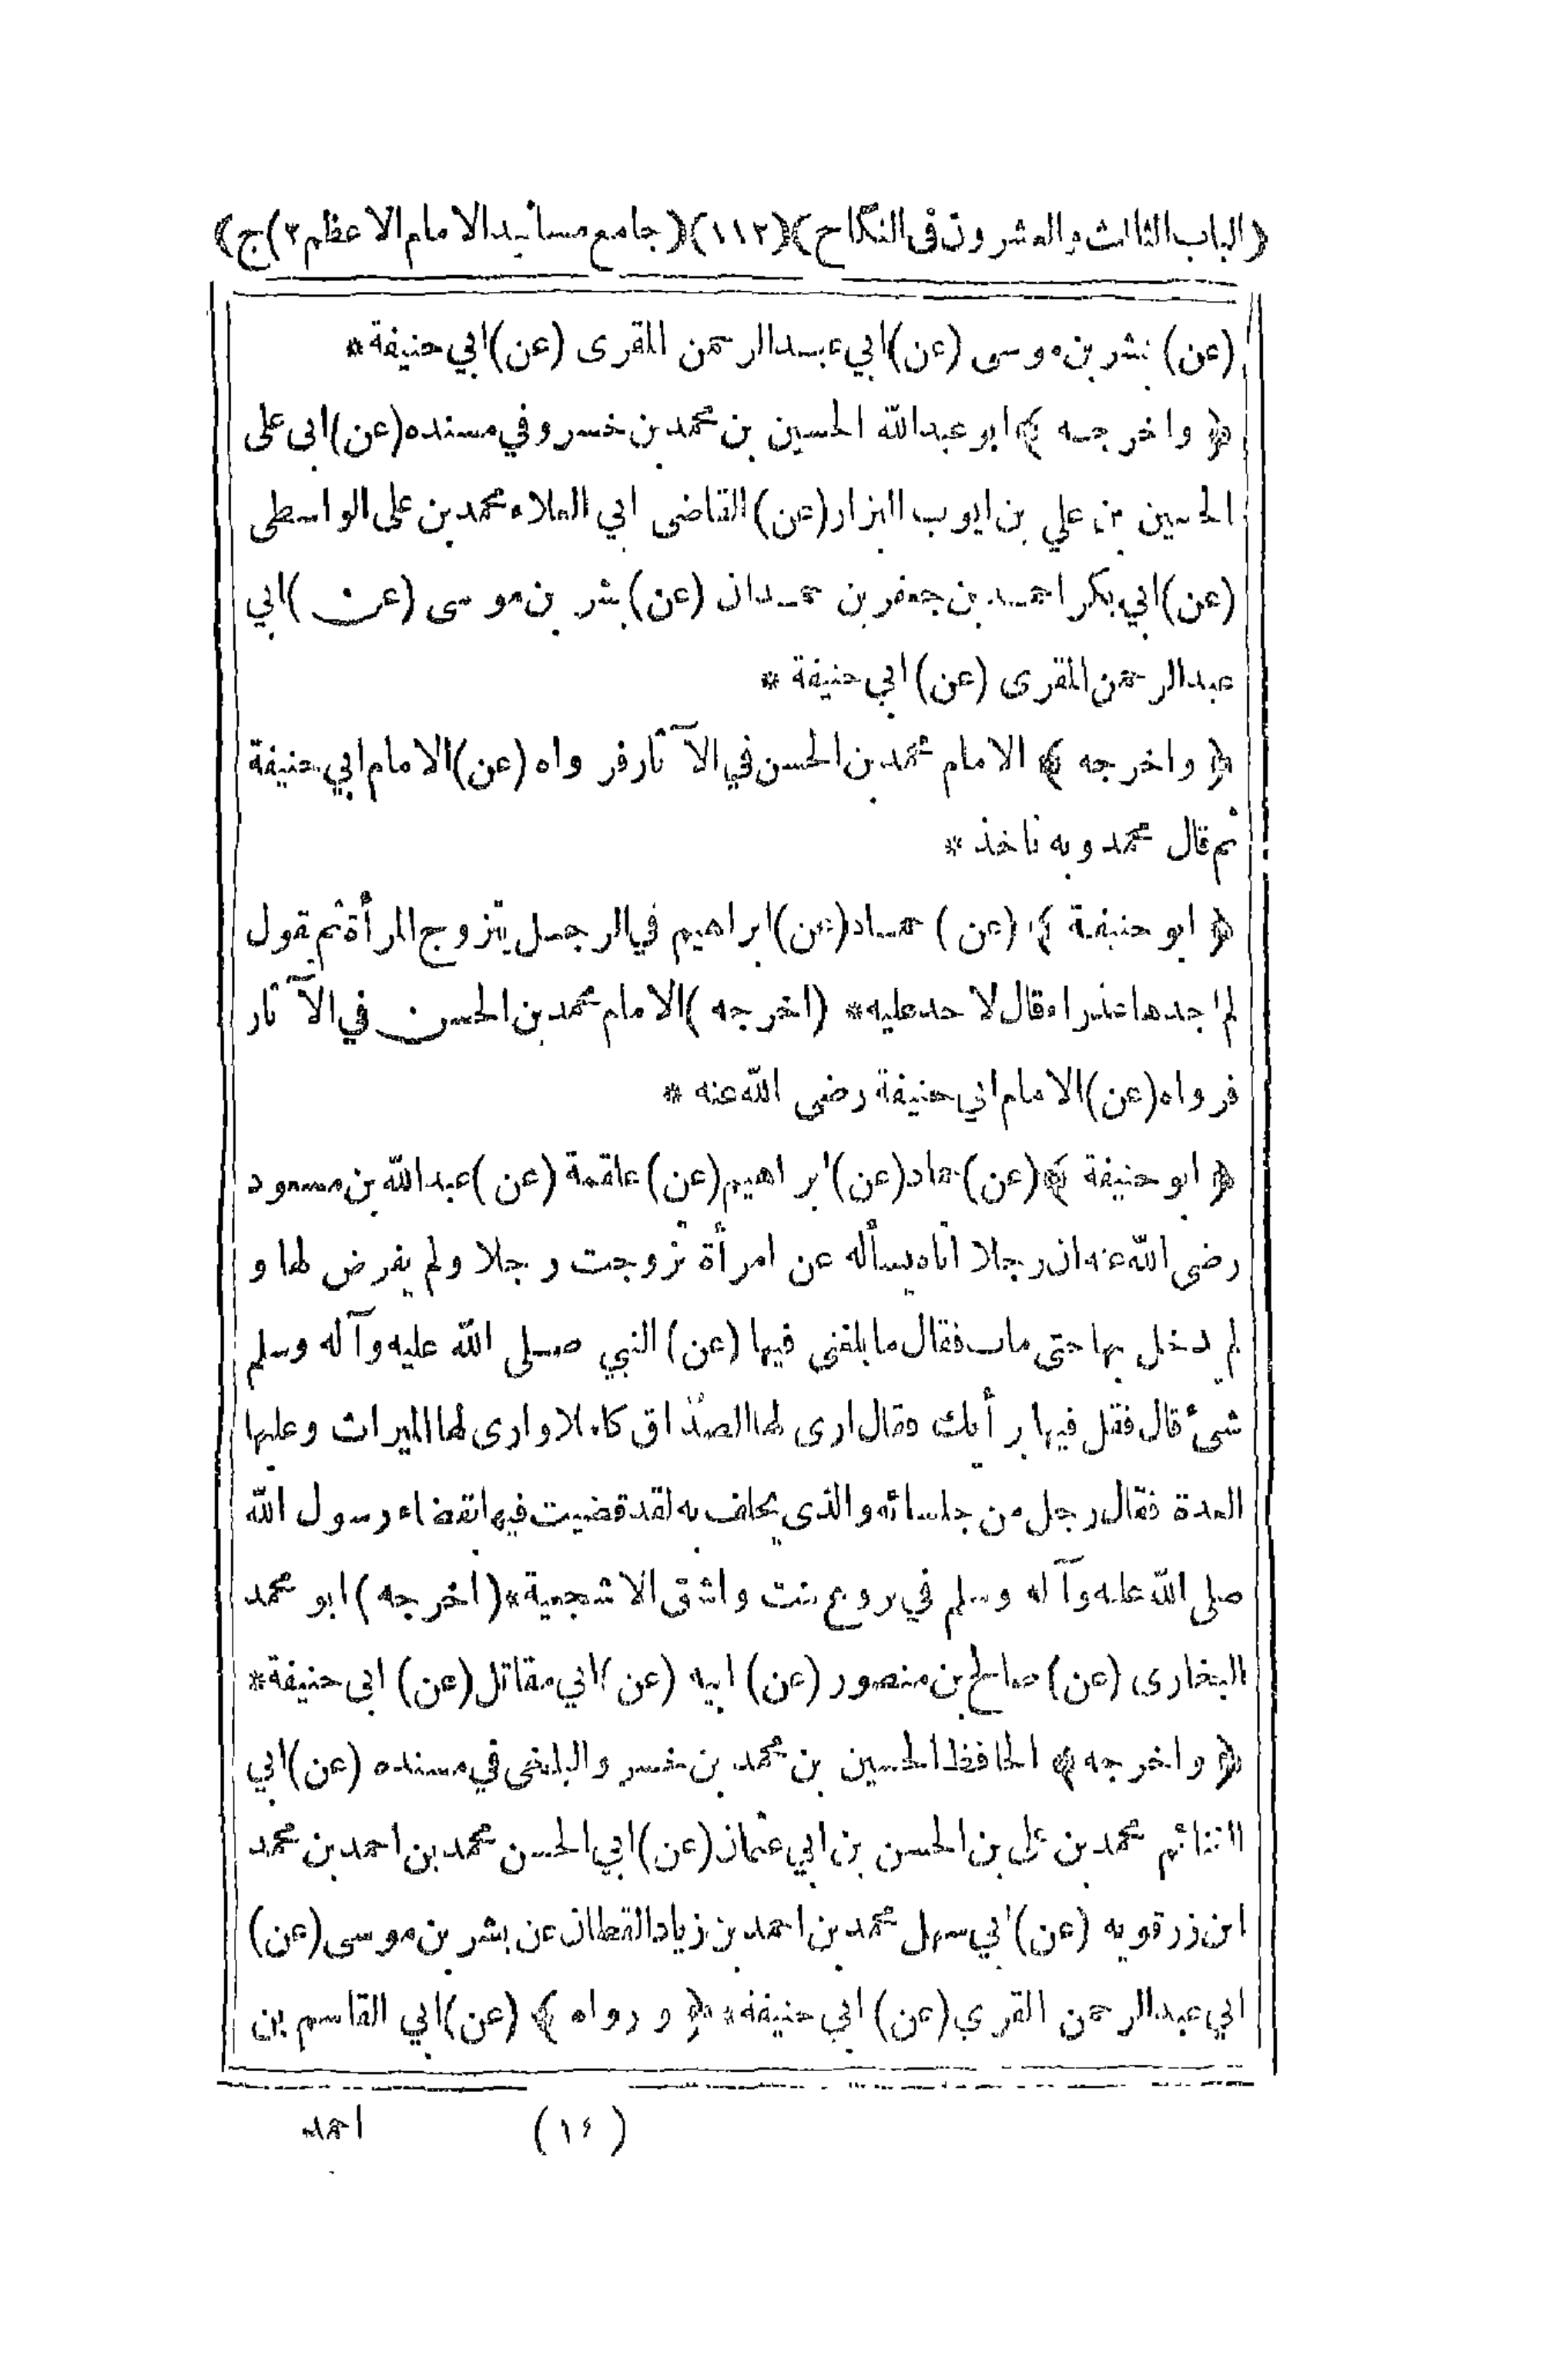 ﴿الباب الثالث والعشرون فى النكاح﴾ (١١٢) ﴿جامع مسانيد الامام الاعظم ٢) ج﴾
(عن) بشر بن موسى (عن) ابي عبدالرحمن المقرى (عن) ابي حنيفة *
﴿ واخرجه ﴾ ابو عبدالله الحسين بن محمد بن خسرو في مسنده (عن) ابى على
الحسين بن علي بن ايوب البزار (عن) القاضى ابي العلاء محمد بن على الواسطى
(عن) ابي بكر احمد بن جعفر بن حمدان (عن) بشر بن موسى (عن) ابي
عبدالرحمن المقرى (عن) ابي حنيفة *
﴿ واخرجه ﴾ الامام محمد بن الحسن في الآثار فرواه (عن) الامام ابي حنيفة
ثم قال محمد وبه ناخذ *
﴿ ابو حنيفة ﴾ (عن) حماد (عن) ابراهيم في الرجل يتزوج المرأة ثم يقول
لم اجدها عذراء قال لا حد عليه * (اخرجه) الامام محمد بن الحسن في الآثار
فرواه (عن) الامام ابي حنيفة رضى الله عنه *
﴿ ابو حنيفة ﴾ (عن) حماد (عن) ابراهيم (عن) علقمة (عن) عبدالله بن مسعود
رضى الله عنه ان رجلا اتاه يسأله عن امرأة تزوجت رجلا ولم يفرض لها و
لم يدخل بها حتى مات فقال ما بلغنى فيها (عن) النبي صلى الله عليه وآله وسلم
شئ قال فقل فيها برأيك فقال ارى لها الصداق كاملا وارى لها الميراث وعليها
العدة فقال رجل من جلسائه والذى يحلف به لقد قضيت فيها بقضاء رسول الله
صلى الله عليه وآله وسلم في بروع بنت واشق الاشجعية * (اخرجه) ابو محمد
البخارى (عن) صالح بن منصور (عن) ابيه (عن) ابي مقاتل (عن) ابى حنيفة *
﴿ واخرجه ﴾ الحافظ الحسين بن محمد بن خسرو البلخى في مسنده (عن) ابي
الغنائم محمد بن على بن الحسن بن ابي عثمان (عن) ابي الحسن محمد بن احمد بن محمد
ابن زرقويه (عن) ابي سهل محمد بن احمد بن زياد القطان عن بشر بن موسى (عن)
ابي عبدالرحمن المقري (عن) ابي حنيفة * ﴿ ورواه ﴾ (عن) ابي القاسم بن
(١٤) احمد